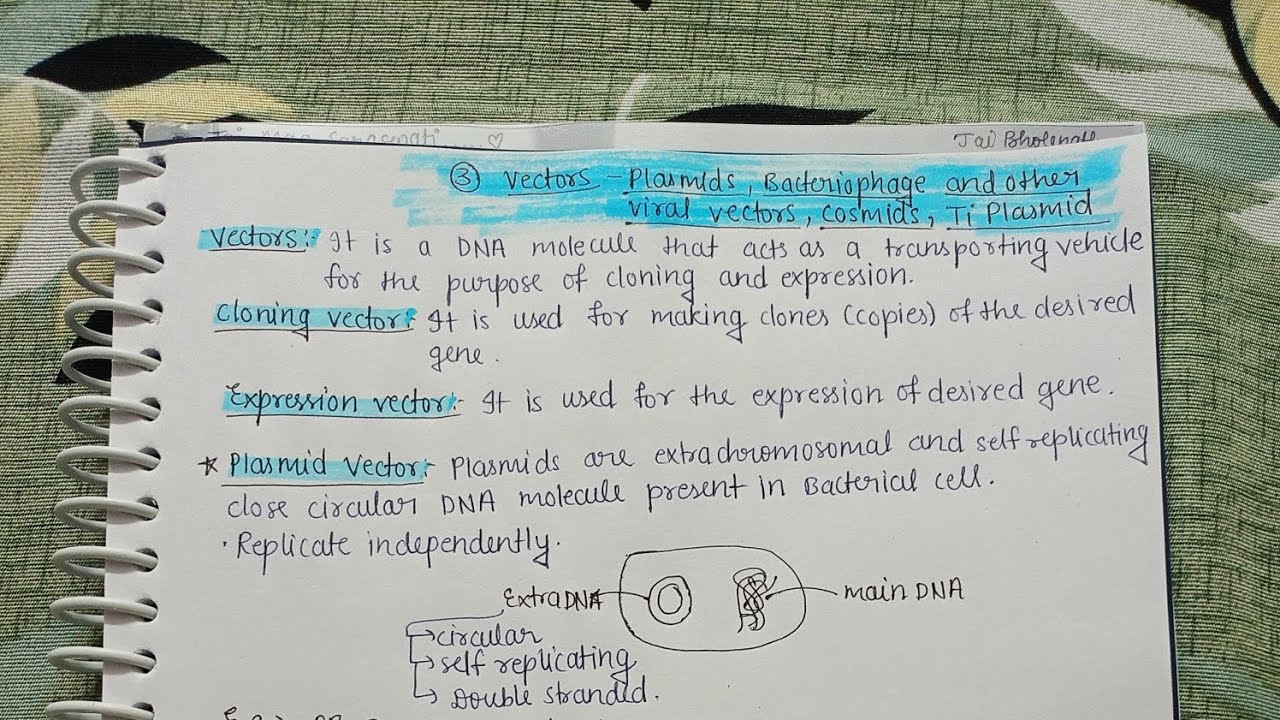 Jai Bholenath
③ Vectors - Plasmids, Bacteriophage and other
viral vectors, cosmids, Ti Plasmid
Vectors:- It is a DNA molecule that acts as a transporting vehicle
for the purpose of cloning and expression.
Cloning vector:- It is used for making clones (copies) of the desired
gene.
Expression vector:- It is used for the expression of desired gene.
* Plasmid Vector:- Plasmids are extrachromosomal and self replicating
close circular DNA molecule present in Bacterial cell.
· Replicate independently.
Extra DNA
main DNA
→ circular
→ self replicating
→ Double stranded.